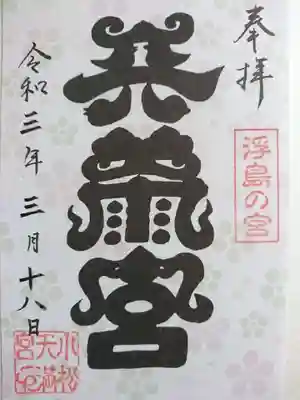 奉拝
浮島の宮
天満宮
令和三年三月十八日
小松
天満
宮